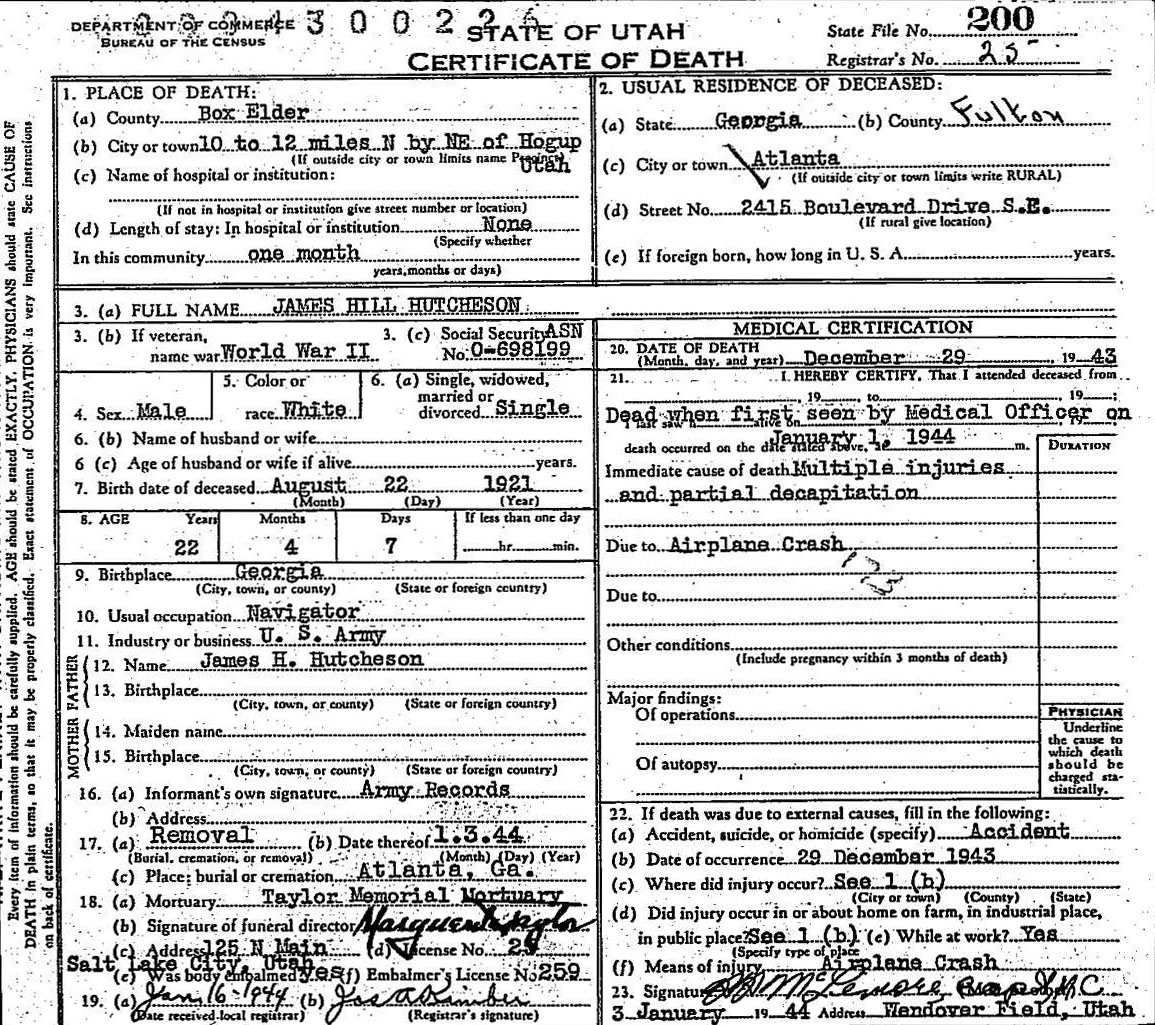 DEPARTMENT OF COMMERCE
BUREAU OF THE CENSUS
3 0 0 2 2
STATE OF UTAH
CERTIFICATE OF DEATH
State File No. 200
Registrar's No. 25
Every item of information should be carefully supplied. AGE should be stated EXACTLY. PHYSICIANS should state CAUSE OF
DEATH in plain terms, so that it may be properly classified. Exact statement of OCCUPATION is very important. See instructions
on back of certificate.
1. PLACE OF DEATH:
(a) County Box Elder
(b) City or town 10 to 12 miles N by NE of Hogup
(If outside city or town limits name Precinct) Utah
(c) Name of hospital or institution:
(If not in hospital or institution give street number or location)
(d) Length of stay: In hospital or institution None
(Specify whether
In this community one month
years, months or days)
2. USUAL RESIDENCE OF DECEASED:
(a) State Georgia (b) County Fulton
(c) City or town Atlanta
(If outside city or town limits write RURAL)
(d) Street No. 2415 Boulevard Drive S.E.
(If rural give location)
(e) If foreign born, how long in U. S. A. years.
3. (a) FULL NAME JAMES HILL HUTCHESON
3. (b) If veteran, 3. (c) Social Security ASN
name war World War II No. O-698199
5. Color or 6. (a) Single, widowed,
married or
4. Sex Male race White divorced Single
6. (b) Name of husband or wife
6 (c) Age of husband or wife if alive years.
7. Birth date of deceased August 22 1921
(Month) (Day) (Year)
8. AGE Years Months Days If less than one day
22 4 7 hr. min.
9. Birthplace Georgia
(City, town, or county) (State or foreign country)
10. Usual occupation Navigator
11. Industry or business U. S. Army
FATHER
12. Name James H. Hutcheson
13. Birthplace
(City, town, or county) (State or foreign country)
MOTHER
14. Maiden name
15. Birthplace
(City, town, or county) (State or foreign country)
16. (a) Informant's own signature Army Records
(b) Address
17. (a) Removal (b) Date thereof 1.3.44
(Burial, cremation, or removal) (Month) (Day) (Year)
(c) Place: burial or cremation Atlanta, Ga.
18. (a) Mortuary Taylor Memorial Mortuary
(b) Signature of funeral director
(c) Address 125 N Main (d) License No.
Salt Lake City, Utah
(e) Was body embalmed yes (f) Embalmer's License No. 259
19. (a) Jan 16-1944 (b) Jos A Kimber
(Date received local registrar) (Registrar's signature)
MEDICAL CERTIFICATION
20. DATE OF DEATH
(Month, day, and year) December 29 , 19 43
21. I HEREBY CERTIFY, That I attended deceased from
, 19 , to , 19 ;
Dead when first seen by Medical Officer on
January 1, 1944
death occurred on the date stated above, at m.
DURATION
Immediate cause of death Multiple injuries
and partial decapitation
Due to Airplane Crash
Due to
Other conditions
(Include pregnancy within 3 months of death)
Major findings:
Of operations
Of autopsy
PHYSICIAN
Underline
the cause to
which death
should be
charged sta-
tistically.
22. If death was due to external causes, fill in the following:
(a) Accident, suicide, or homicide (specify) Accident
(b) Date of occurrence 29 December 1943
(c) Where did injury occur? See 1 (b)
(City or town) (County) (State)
(d) Did injury occur in or about home on farm, in industrial place,
in public place? See 1 (b) (e) While at work? Yes
(Specify type of place
(f) Means of injury Airplane Crash
23. Signature McLemore
3 January 19 44 Address Wendover Field, Utah